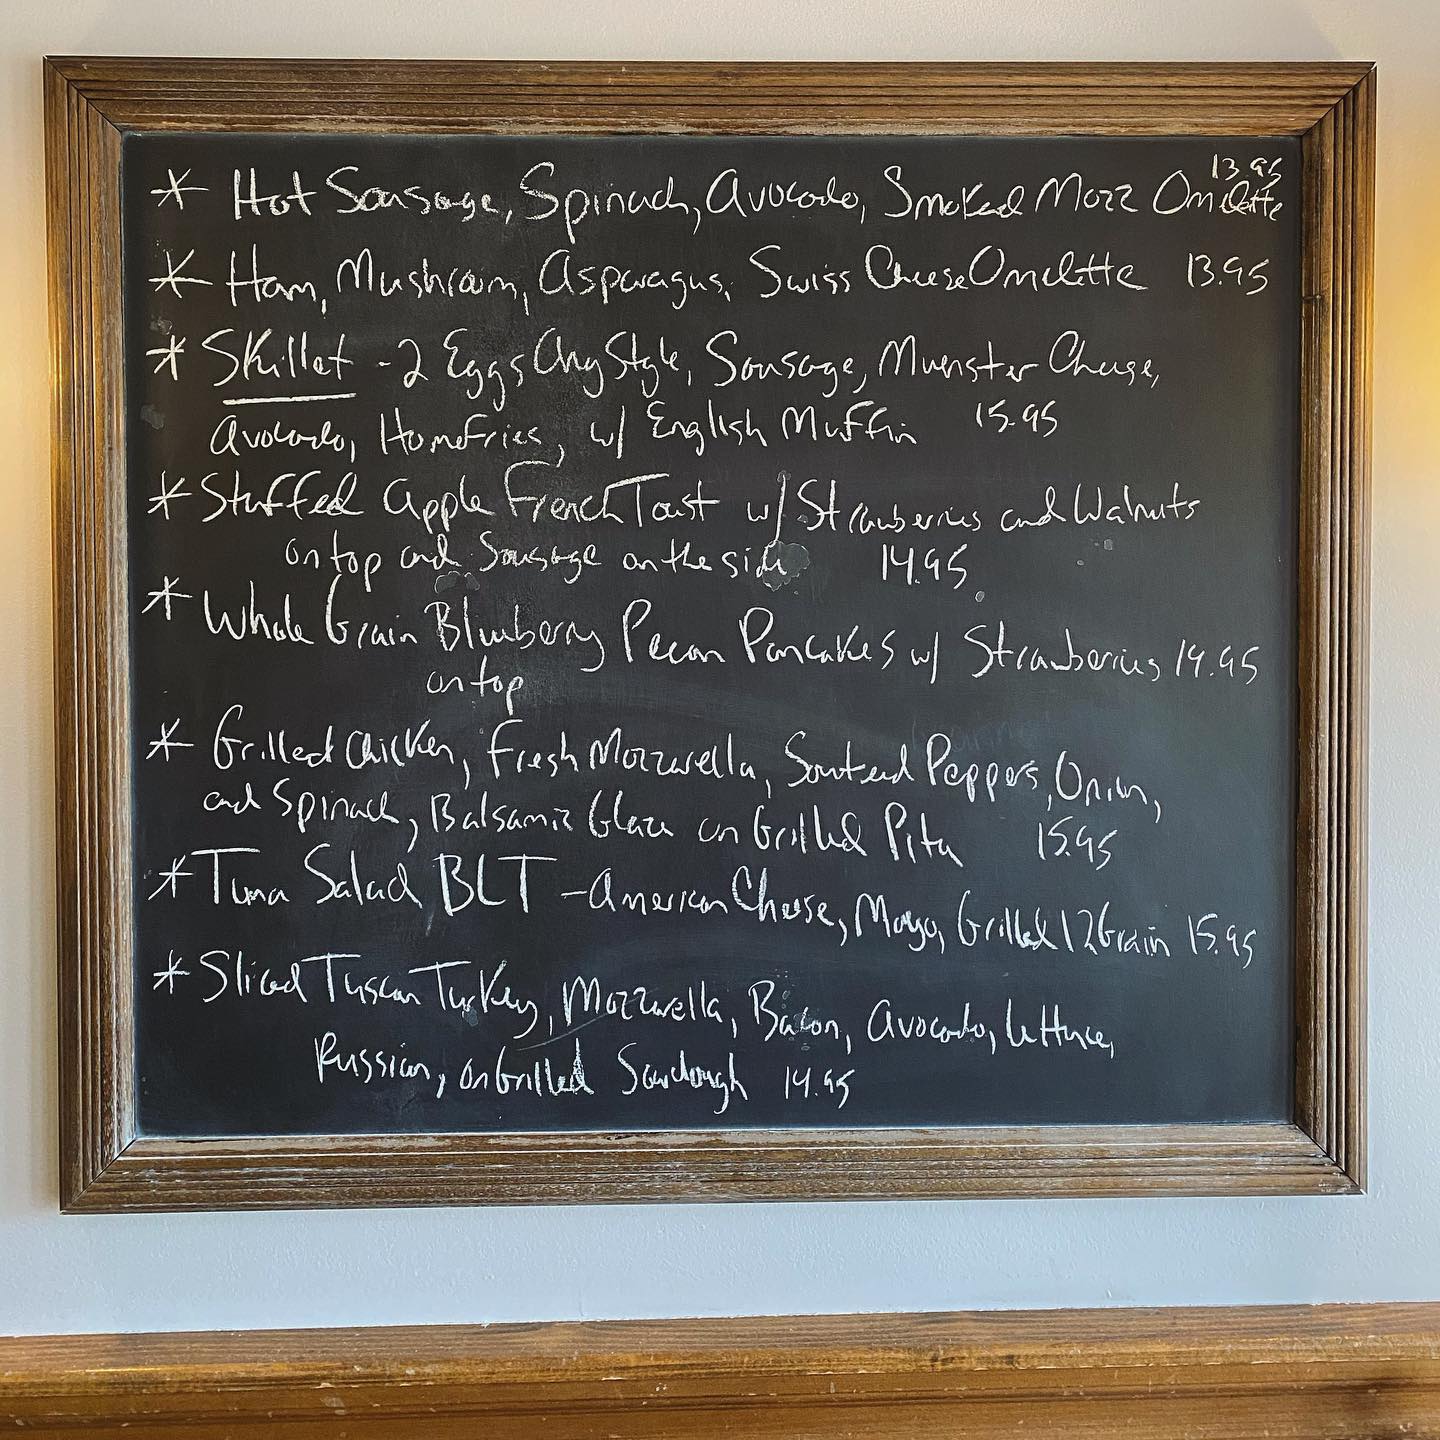 13.95
* Hot Sausage, Spinach, Avocado, Smoked Mozz Omelette
* Ham, Mushroom, Asparagus, Swiss Cheese Omelette 13.95
* Skillet - 2 Eggs Any Style, Sausage, Muenster Cheese,
Avocado, Homefries, w/ English Muffin 15.95
* Stuffed Apple French Toast w/ Strawberries and Walnuts
on top and Sausage on the side 14.95
* Whole Grain Blueberry Pecan Pancakes w/ Strawberries 14.95
on top
* Grilled Chicken, Fresh Mozzarella, Sauteed Peppers, Onion,
and Spinach, Balsamic Glaze on Grilled Pita 15.95
* Tuna Salad BLT - American Cheese, Mayo, Grilled 12 Grain 15.95
* Sliced Tuscan Turkey, Mozzarella, Bacon, Avocado, lettuce,
Russian, on Grilled Sourdough 14.95